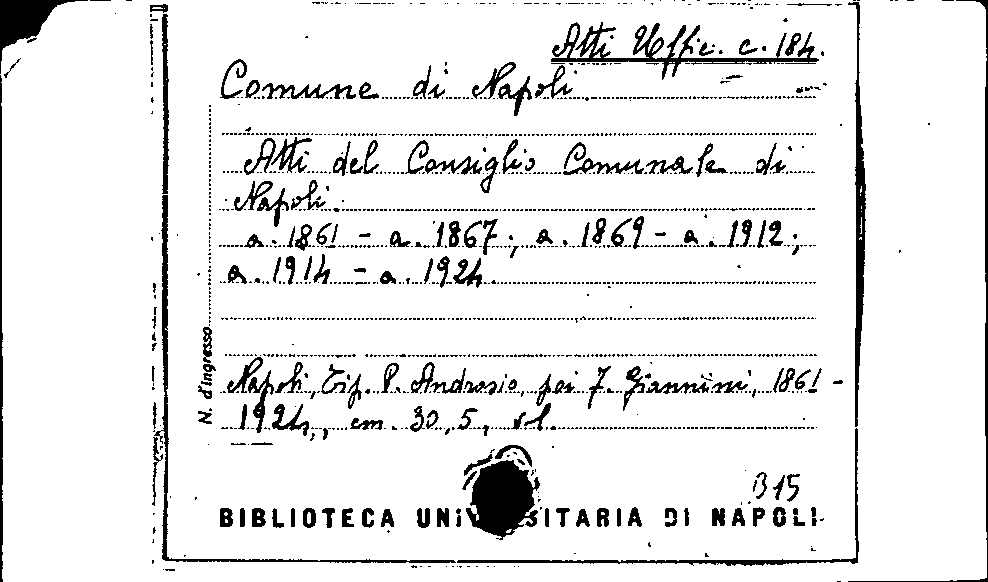 Atti Uffic. c. 184.
Comune di Napoli
Atti del Consiglio Comunale di
Napoli.
a. 1861 - a. 1867; a. 1869 - a. 1912;
a. 1914 - a. 1924.
N. d'Ingresso
Napoli, Tip. P. Androsio, poi F. Giannini, 1861 -
1924, cm. 30,5, vl.
B15
BIBLIOTECA UNIVERSITARIA DI NAPOLI